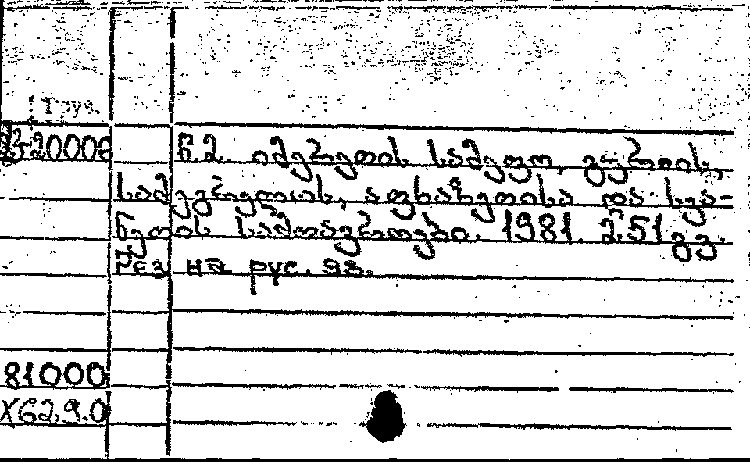 Груз.
წ.2. იმერეთის სამეფო, გურიის,
სამეგრელოს, აფხაზეთისა და სვა-
ნეთის სამთავროები. 1981. 251 გვ.
Рез на рус. яз.
81000